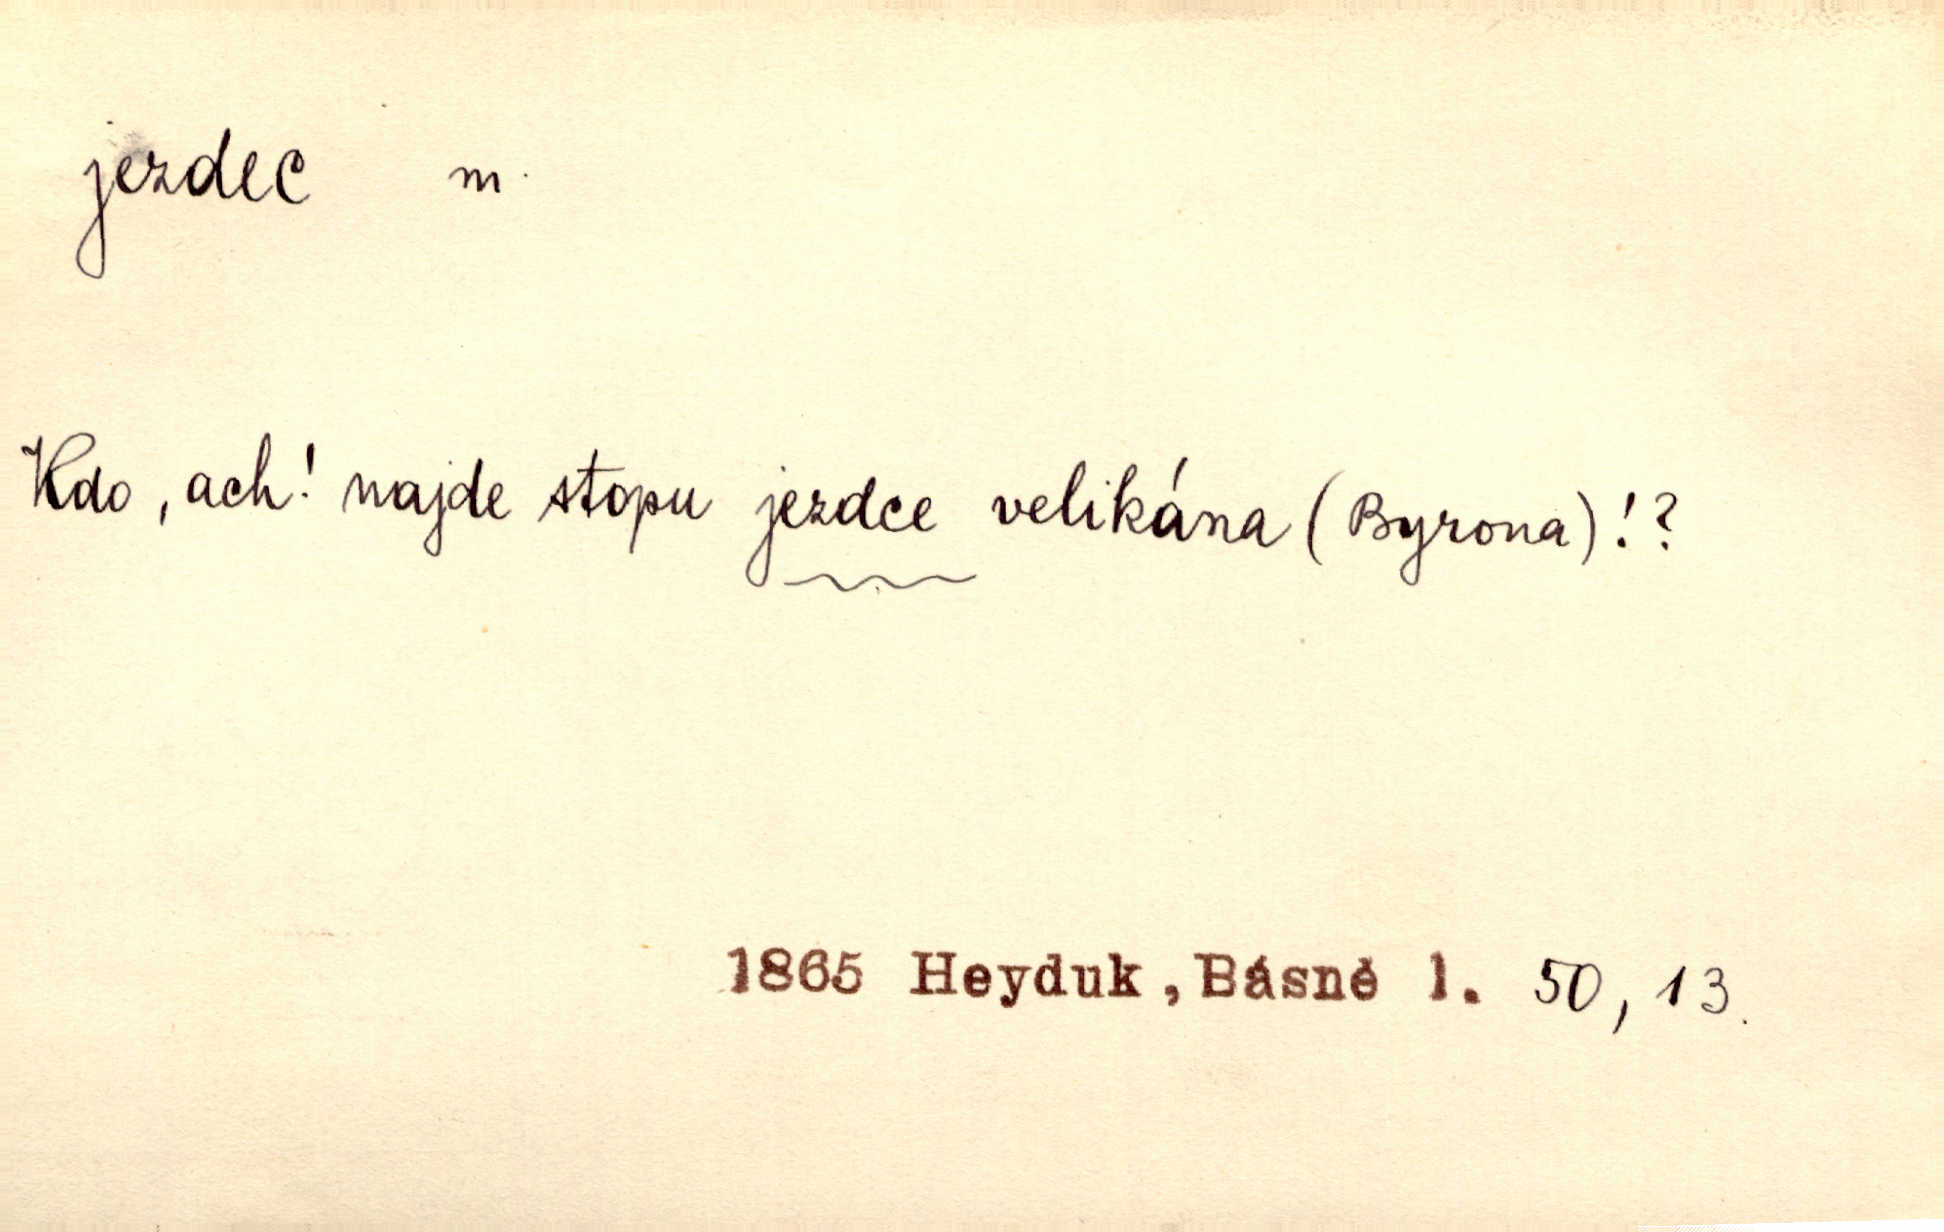 jezdec m.
Kdo, ach! najde stopu jezdce velikána (Byrona)!?
1865 Heyduk, Básně 1. 50, 13.